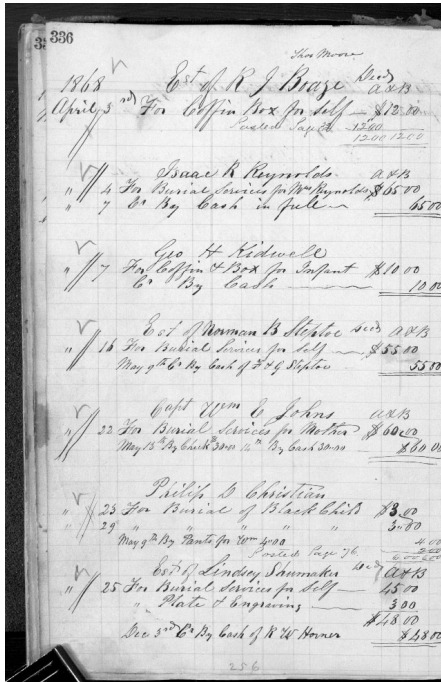 336
Thos Moore
1868 Est of R J Boaze Decd A & B
April 3rd For Coffin Box for Self — $12.00
Posted Page 12.00
12.00 12.00
Isaac R Reynolds A & B
" 4 For Burial Services for Mrs Reynolds, $65.00
" 7 Cr By Cash in full — 65.00
Geo H Kidwell
" 7 For Coffin & Box for Infant $10.00
Cr By Cash — 10.00
Est of Norman B Steptoe Decd A & B
" 16 For Burial Services for Self — $55.00
May 9th Cr By Cash of F & G Steptoe 55.00
Capt Wm E Johns A & B
" 22 For Burial Services for Mother $60.00
May 13th By Check 30.00 14th By Cash 30.00 — $60.00
Philip D Christian
" 23 For Burial of Black Child $3.00
" 29 " " " " " 3.00
May 9th By Pants for Wm 4.00 4.00
Posted Page 76. 2.00
6.00 6.00
Est of Lindsey Shumaker Decd A & B
" 25 For Burial Services for Self — 45.00
" Plate & Engraving — 3.00
$48.00
Dec 3rd Cr By Cash of R W Horner $48.00
256